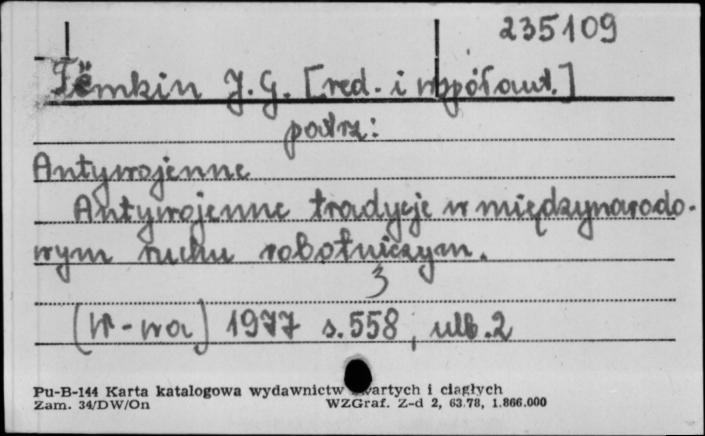 235109
Tëmkin J.G. [red. i współaut.]
patrz:
Antywojenne
Antywojenne tradycje w międzynarodo-
wym ruchu robotniczym.
3
(W-wa) 1977 s.558, ulb.2
Pu-B-144 Karta katalogowa wydawnictw zwartych i ciągłych
Zam. 34/DW/On WZGraf. Z-d 2, 63.78, 1.866.000